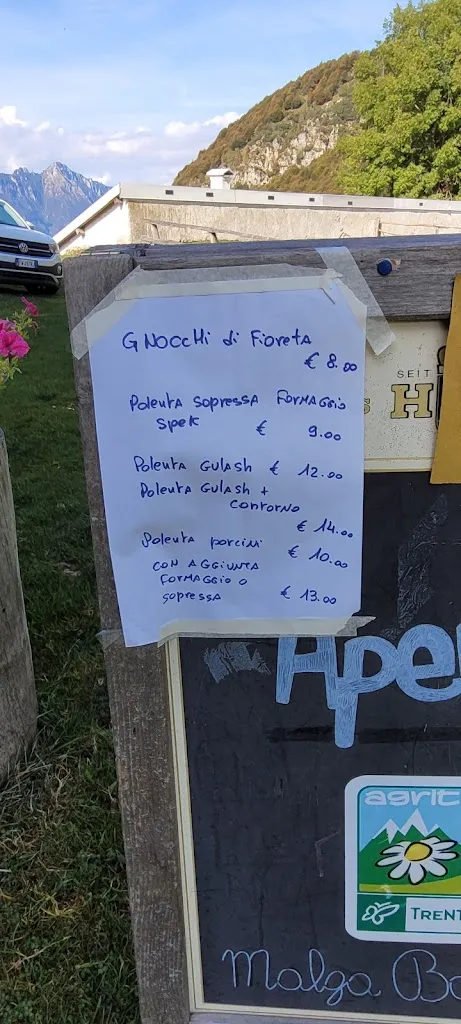 GNOCCHI di Fioreta
€ 8.00
Polenta sopressa FORMAGGIO
SPEK € 9.00
Polenta GULASH € 12.00
Polenta GULASH +
CONTORNO
€ 14.00
Polenta porcini € 10.00
CON AGGIUNTA
FORMAGGIO O
sopressa € 13.00
SEIT
H
Ape
agrit
TRENT
Malga Bo